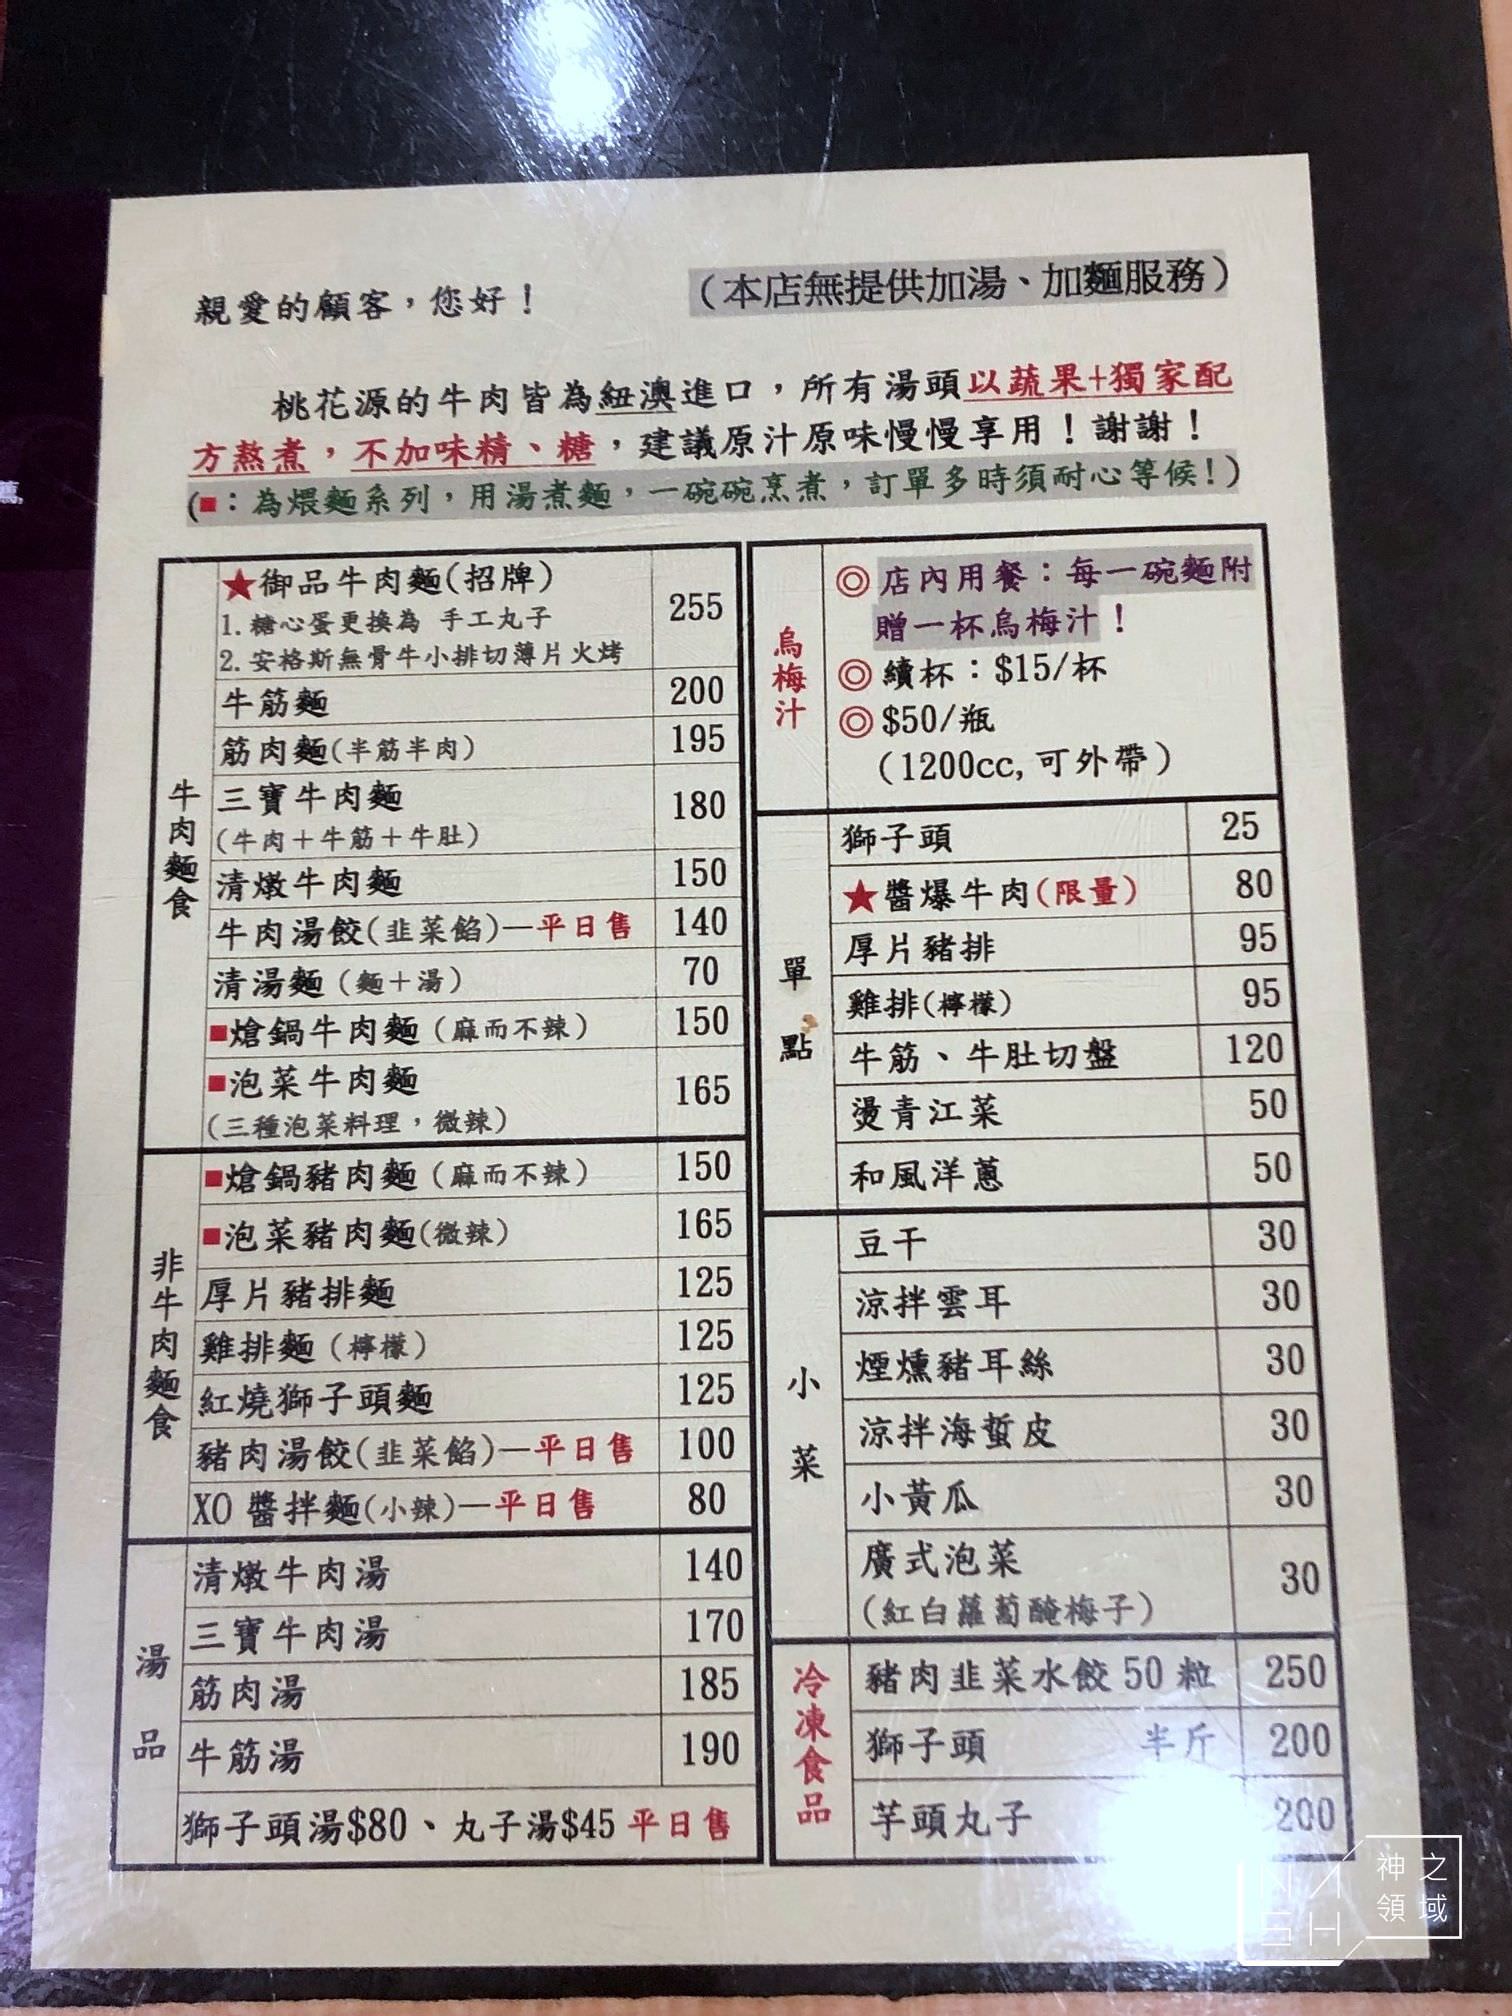 親愛的顧客，您好！
（本店無提供加湯、加麵服務）
桃花源的牛肉皆為紐澳進口，所有湯頭以蔬果+獨家配
方熬煮，不加味精、糖，建議原汁原味慢慢享用！謝謝！
(■：為煨麵系列，用湯煮麵，一碗碗烹煮，訂單多時須耐心等候！)
牛肉麵食
★御品牛肉麵(招牌) 255
1. 糖心蛋更換為 手工丸子
2. 安格斯無骨牛小排切薄片火烤
牛筋麵 200
筋肉麵(半筋半肉) 195
三寶牛肉麵 180
(牛肉＋牛筋＋牛肚)
清燉牛肉麵 150
牛肉湯餃(韭菜餡)—平日售 140
清湯麵（麵＋湯） 70
■熗鍋牛肉麵（麻而不辣） 150
■泡菜牛肉麵 165
(三種泡菜料理，微辣)
非牛肉麵食
■熗鍋豬肉麵（麻而不辣） 150
■泡菜豬肉麵(微辣) 165
厚片豬排麵 125
雞排麵（檸檬） 125
紅燒獅子頭麵 125
豬肉湯餃(韭菜餡)—平日售 100
XO 醬拌麵(小辣)—平日售 80
湯品
清燉牛肉湯 140
三寶牛肉湯 170
筋肉湯 185
牛筋湯 190
獅子頭湯$80、丸子湯$45 平日售
烏梅汁
◎ 店內用餐：每一碗麵附
贈一杯烏梅汁！
◎ 續杯：$15/杯
◎ $50/瓶
（1200cc, 可外帶）
單點
獅子頭 25
★醬爆牛肉(限量) 80
厚片豬排 95
雞排(檸檬) 95
牛筋、牛肚切盤 120
燙青江菜 50
和風洋蔥 50
小菜
豆干 30
涼拌雲耳 30
煙燻豬耳絲 30
涼拌海蜇皮 30
小黃瓜 30
廣式泡菜 30
(紅白蘿蔔醃梅子)
冷凍食品
豬肉韭菜水餃 50 粒 250
獅子頭 半斤 200
芋頭丸子 200
NASH
神之
領域